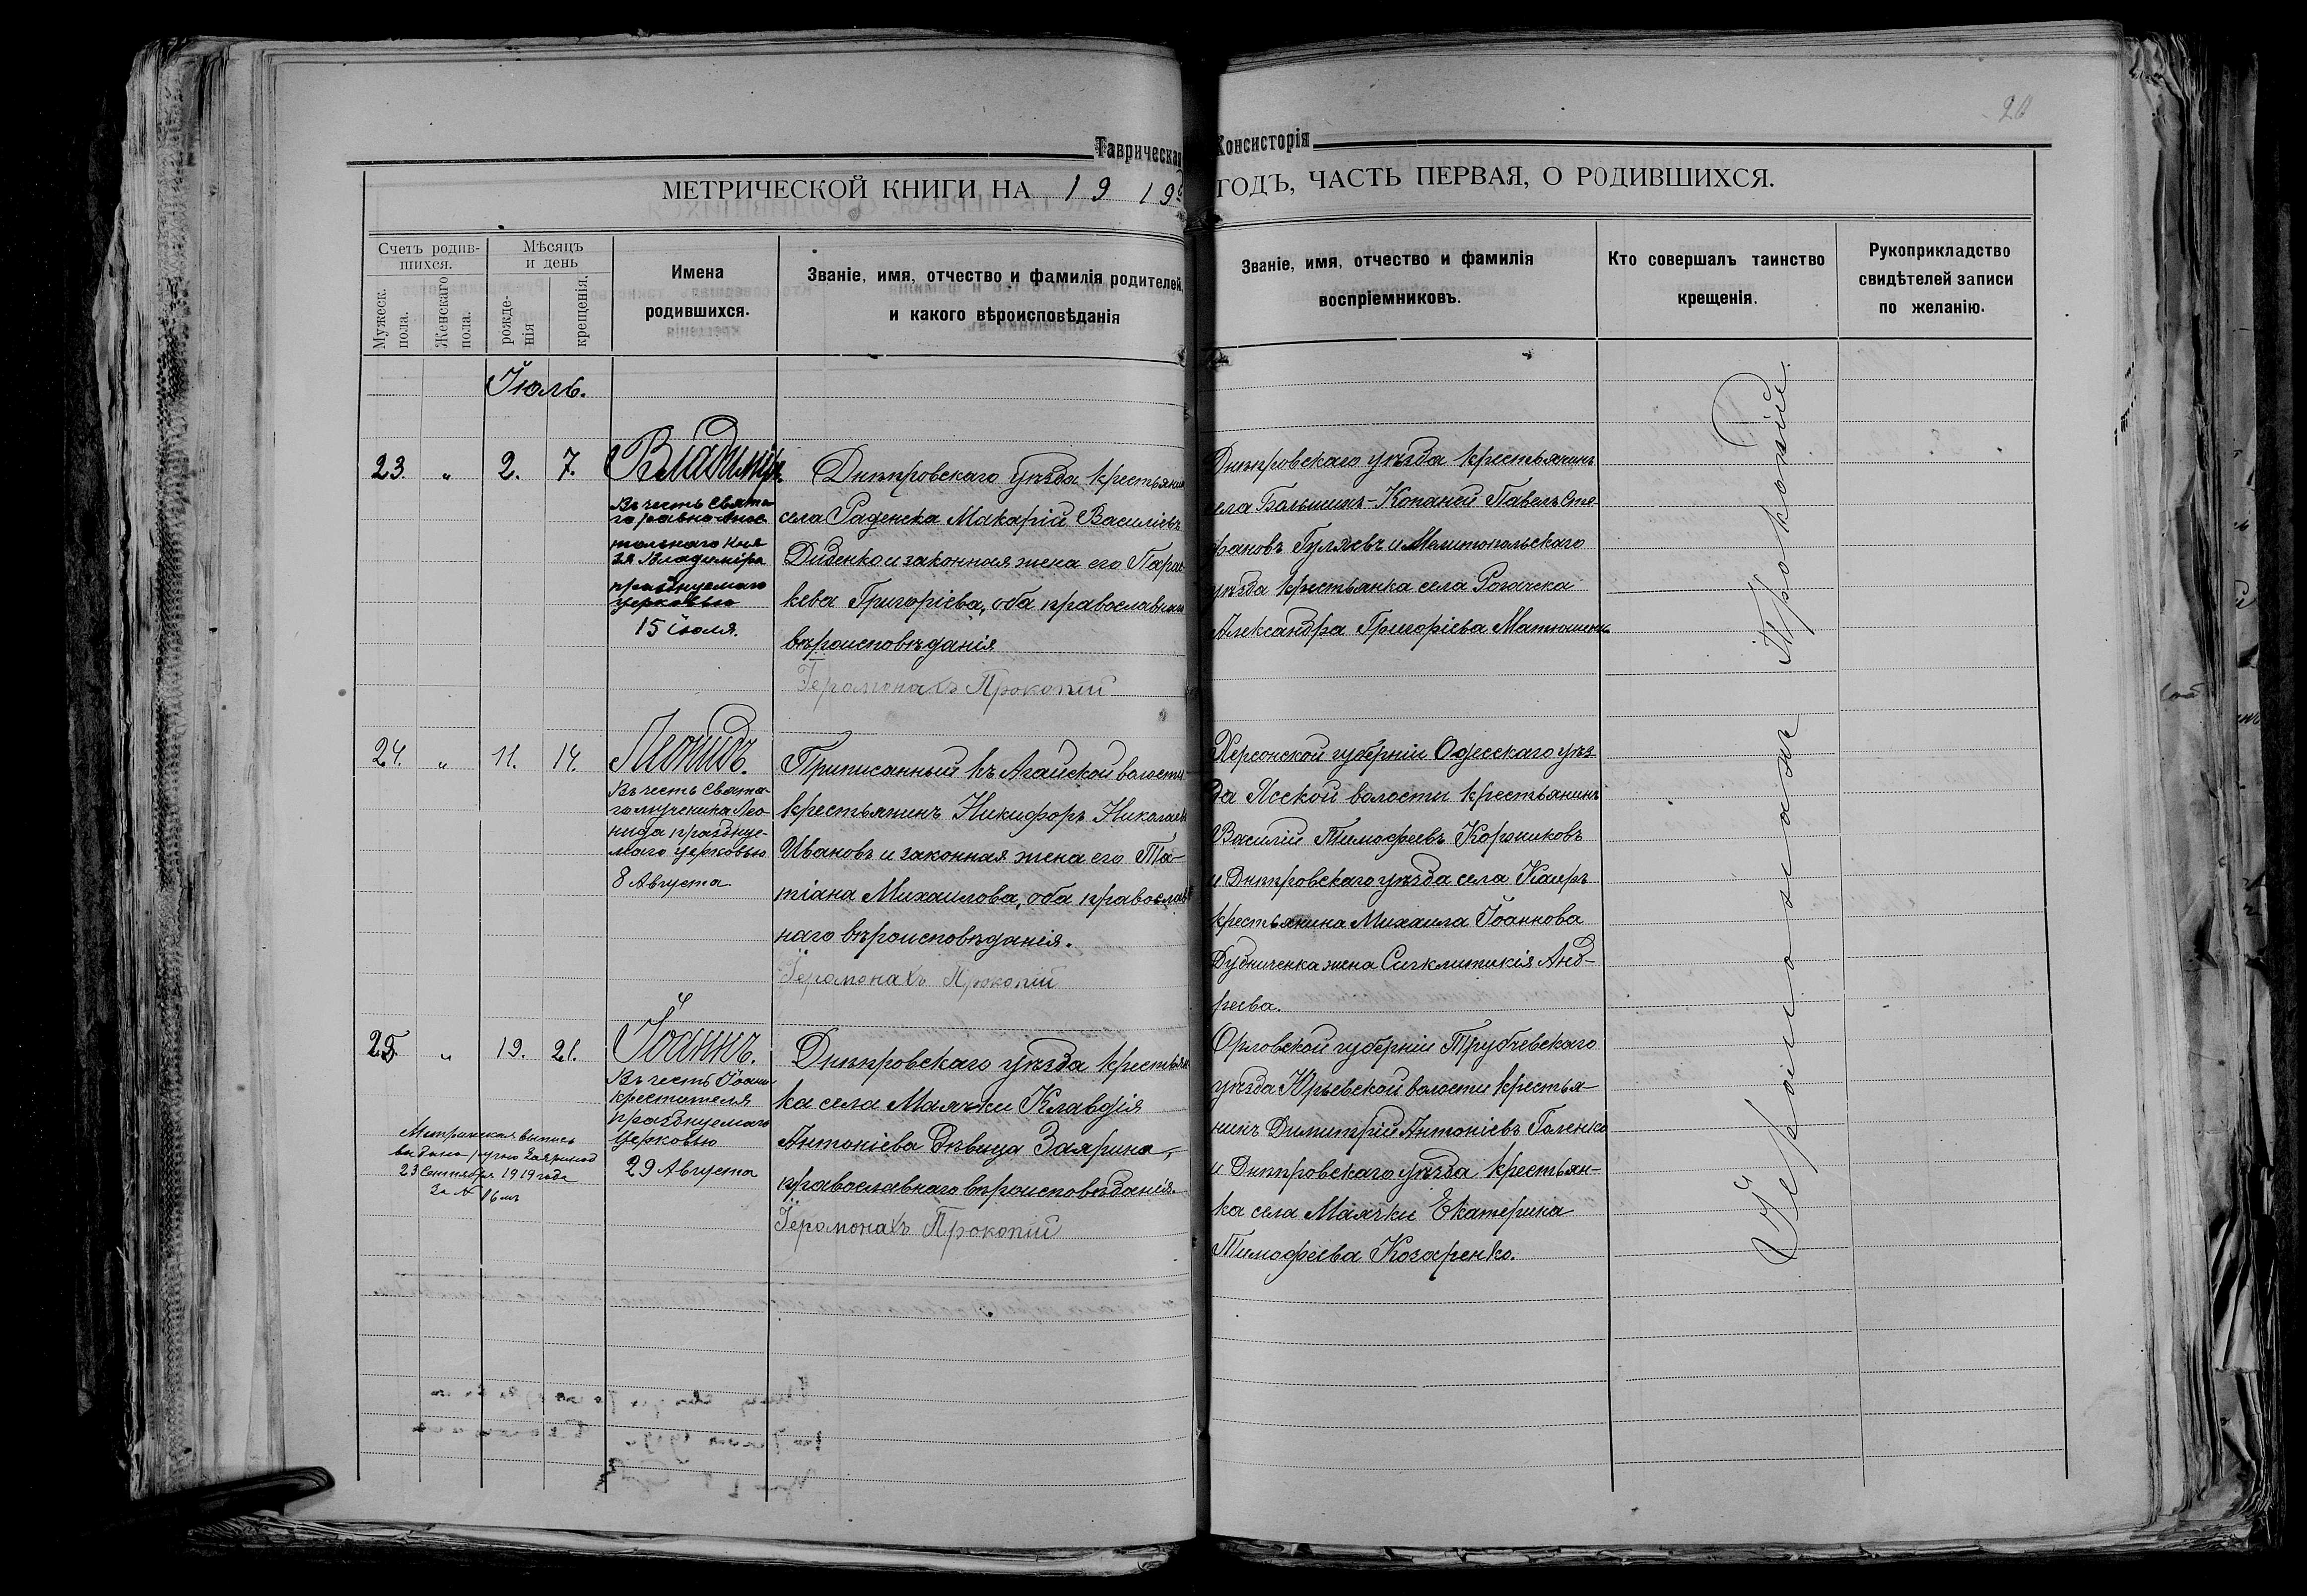 20
Таврическая Консисторія
МЕТРИЧЕСКОЙ КНИГИ НА 1919 ГОДЪ, ЧАСТЬ ПЕРВАЯ, О РОДИВШИХСЯ.
Счетъ родив-
шихся.
Мужеск.
пола.
Женскаго
пола.
Мѣсяцъ
и день
рожде-
нія
крещенія.
Имена
родившихся.
Званіе, имя, отчество и фамилія родителей,
и какого вѣроисповѣданія
Званіе, имя, отчество и фамилія
воспріемниковъ.
Кто совершалъ таинство
крещенія.
Рукоприкладство
свидѣтелей записи
по желанію.
Іюль.
23 „ 2. 7.
Владиміръ
Въ честь Свята-
го равно Апос
тольнаго Кня
зя Владиміра
празднуемаго
церковью
15 іюля.
Днѣпровскаго уѣзда крестьянин
села Раденска Макарій Василіевъ
Диденко и законная жена его Парас-
кева Григоріева, оба православнаго
вѣроисповѣданія
Іеромонахъ Прокопій
Днѣпровскаго уѣзда крестьянинъ
села Большихъ-Копаней Павелъ Сте-
фановъ Гуляевъ и Мелитопольскаго
уѣзда крестьянка села Рогачска
Александра Григоріева Матюшенк
24. „ 11. 14.
Леонидъ.
Въ честь Свята-
го мученика Лео-
нида праздну-
емаго церковью
8 Августа
Приписанный къ Агайской волости
крестьянинъ Никифоръ Николаевъ
Ивановъ и законная жена его Та-
тіана Михаилова, оба православ
наго вѣроисповѣданія.
Іеромонахъ Прокопій
Херсонской губерніи Одесскаго уѣз
да Ясской волости крестьянинъ
Василій Тимофеевъ Коржиковъ
и Днѣпровскаго уѣзда села Каиръ
крестьянина Михаила Іоаннова
Дудниченка жена Сигклитикія Анд-
реева.
25. „ 19. 21.
Іоаннъ.
Въ честь Іоанн
крестителя
празднуемаго
Церковью
29 Августа
Метрическая выпись
выдана
23 Сентября 1919 года
За № 16
Днѣпровскаго уѣзда крестьян
ка села Маячки Клавдія
Антоніева дѣвица Заярина,
православнаго вѣроисповѣданія.
Іеромонахъ Прокопій
Орловской губерніи Трубчевскаго
уѣзда Юрьевской волости крестья-
нинъ Димитрій Антоніевъ Галенко
и Днѣпровскаго уѣзда крестьян-
ка села Маячки Екатерина
Тимофеева Козаренко.
Іеромонахъ Прокопій.